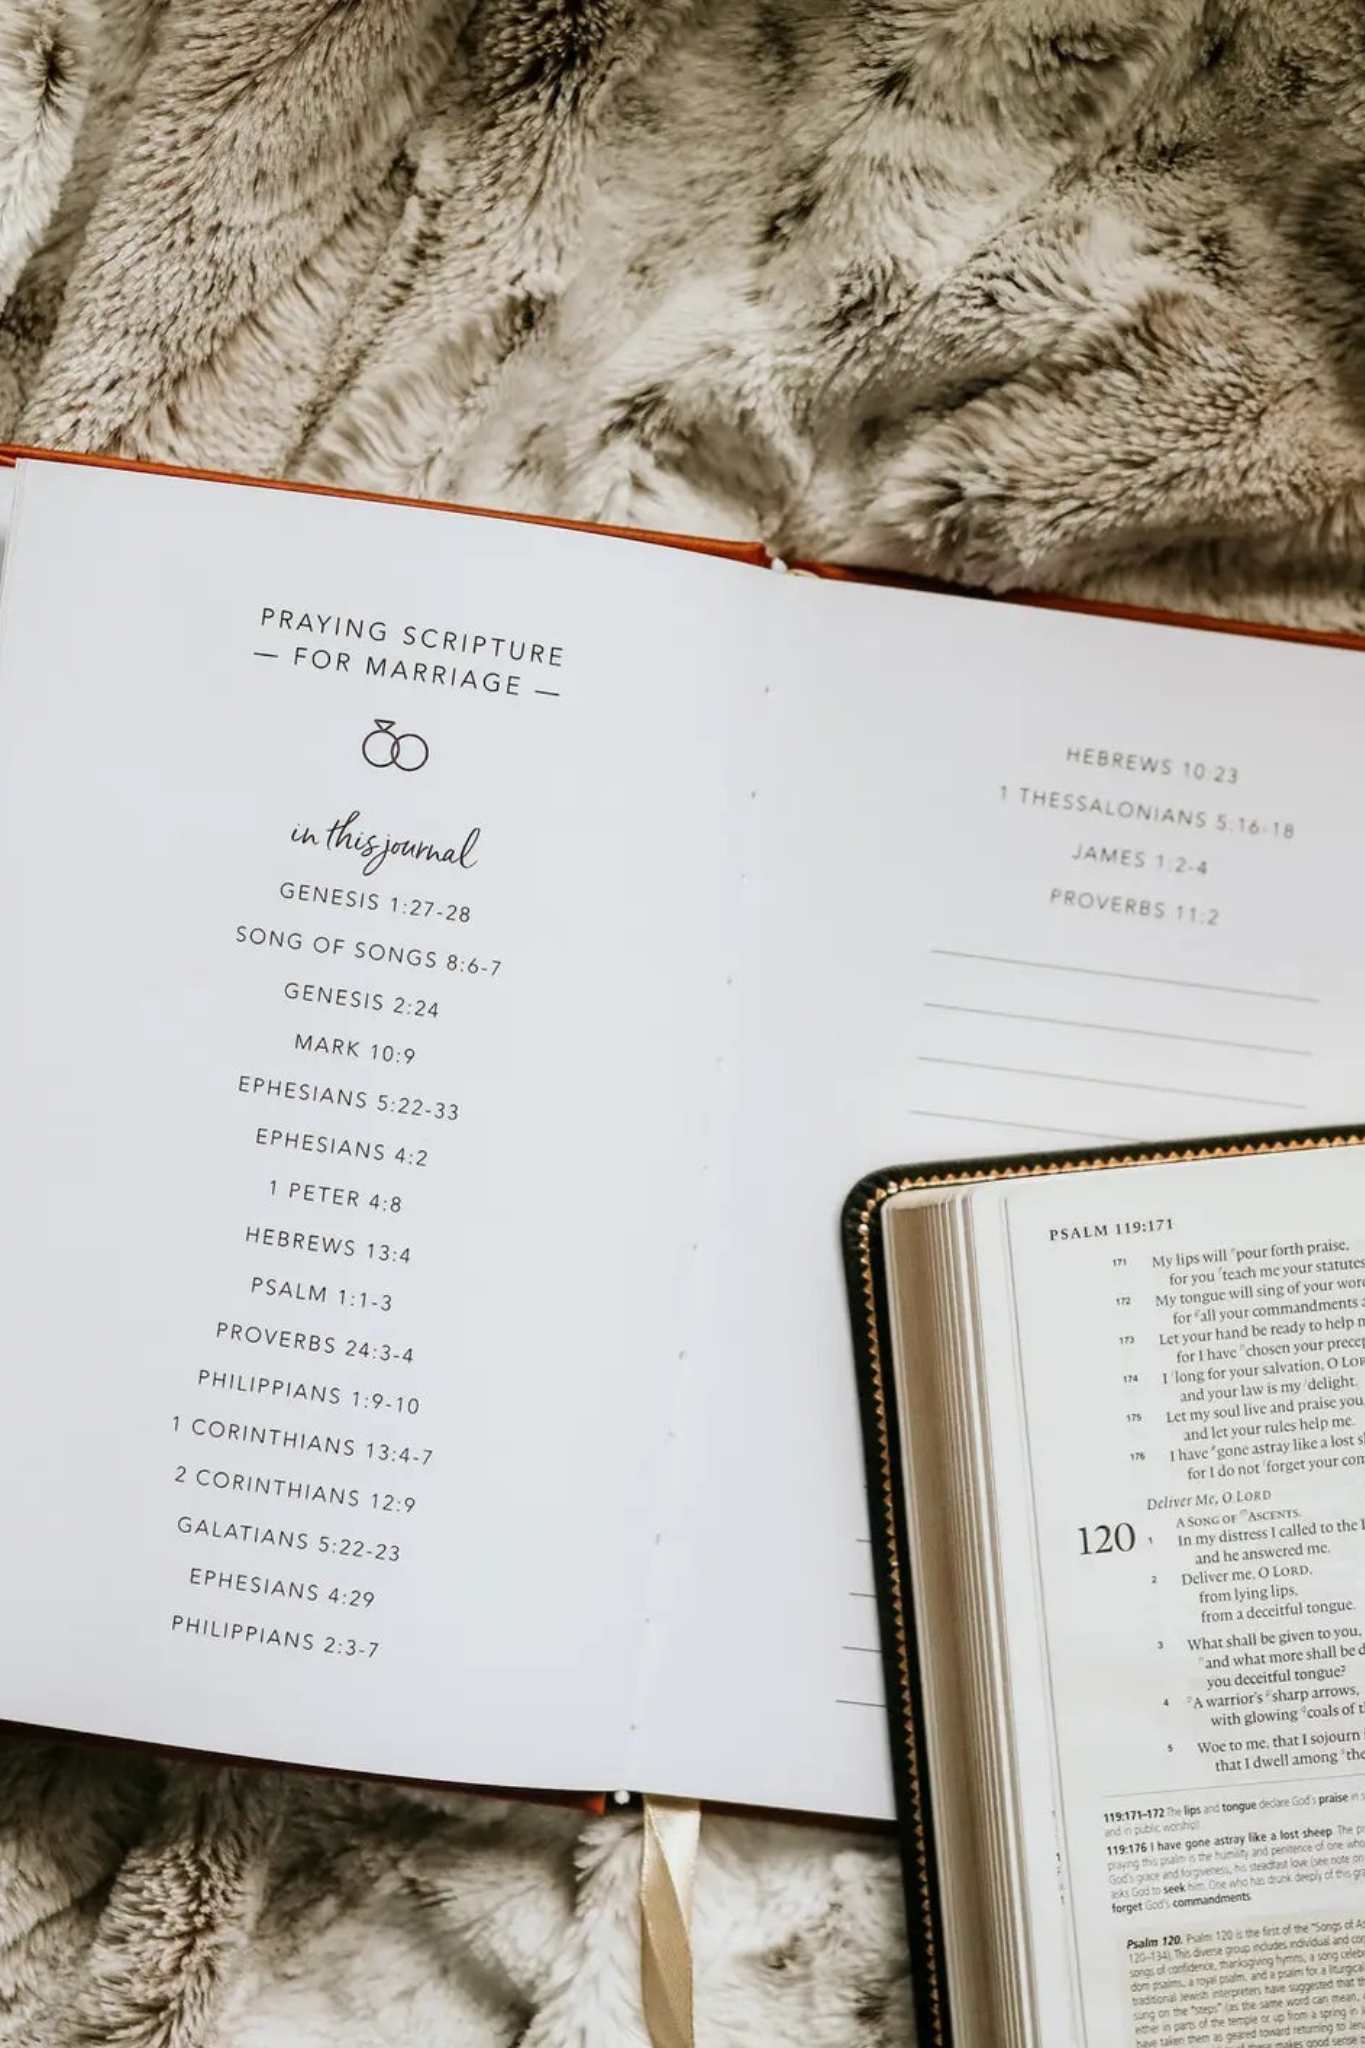 PRAYING SCRIPTURE
— FOR MARRIAGE —
in this journal
GENESIS 1:27-28
SONG OF SONGS 8:6-7
GENESIS 2:24
MARK 10:9
EPHESIANS 5:22-33
EPHESIANS 4:2
1 PETER 4:8
HEBREWS 13:4
PSALM 1:1-3
PROVERBS 24:3-4
PHILIPPIANS 1:9-10
1 CORINTHIANS 13:4-7
2 CORINTHIANS 12:9
GALATIANS 5:22-23
EPHESIANS 4:29
PHILIPPIANS 2:3-7
HEBREWS 10:23
1 THESSALONIANS 5:16-18
JAMES 1:2-4
PROVERBS 11:2
PSALM 119:171
171 My lips will pour forth praise,
for you teach me your statutes
172 My tongue will sing of your
for all your commandments
173 Let your hand be ready to help
for I have chosen your
174 I long for your salvation, O
and your law is my delight.
175 Let my soul live and praise you,
and let your rules help me.
176 I have gone astray like a lost
for I do not forget your
Deliver Me, O LORD
A SONG OF ASCENTS.
120 1 In my distress I called to the
and he answered me.
2 Deliver me, O LORD,
from lying lips,
from a deceitful tongue.
3 What shall be given to you,
and what more shall be
you deceitful tongue?
4 A warrior's sharp arrows,
with glowing coals of
5 Woe to me, that I sojourn
that I dwell among
119:171–172 The lips and tongue declare God's praise in
and in public worship)
119:176 I have gone astray like a lost sheep. The
praying this psalm is the humility and penitence of one
God's grace and forgiveness, his steadfast love (see note on
asks God to seek him. One who has drunk deeply of this
forget God's commandments.
Psalm 120. Psalm 120 is the first of the "Songs of
120–134). This diverse group includes individual and
songs of confidence, thanksgiving hymns, a song
dom psalms, a royal psalm, and a psalm for a liturgical
traditional Jewish interpreters have suggested that
sung on the "steps" (as the same word can mean,
either in parts of the temple or up from a spring in
have taken them as geared toward returning to
makes good sense